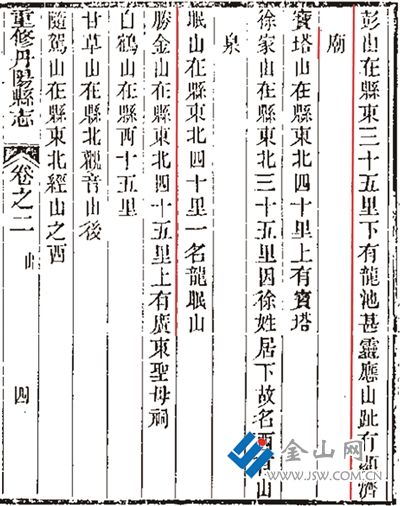 彭山在縣東三十五里下有龍池甚靈應山趾有顯濟
廟
寶塔山在縣東北四十里上有寶塔
徐家山在縣東北三十五里因徐姓居下故名西有山
泉
眠山在縣東北四十里一名龍眠山
勝金山在縣東北四十五里上有廣東聖母祠
白鶴山在縣西十五里
甘草山在縣北觀音山後
隨駕山在縣東北經山之西
重修丹陽縣志
卷之二
山
四
金山网
WWW.JSW.COM.CN